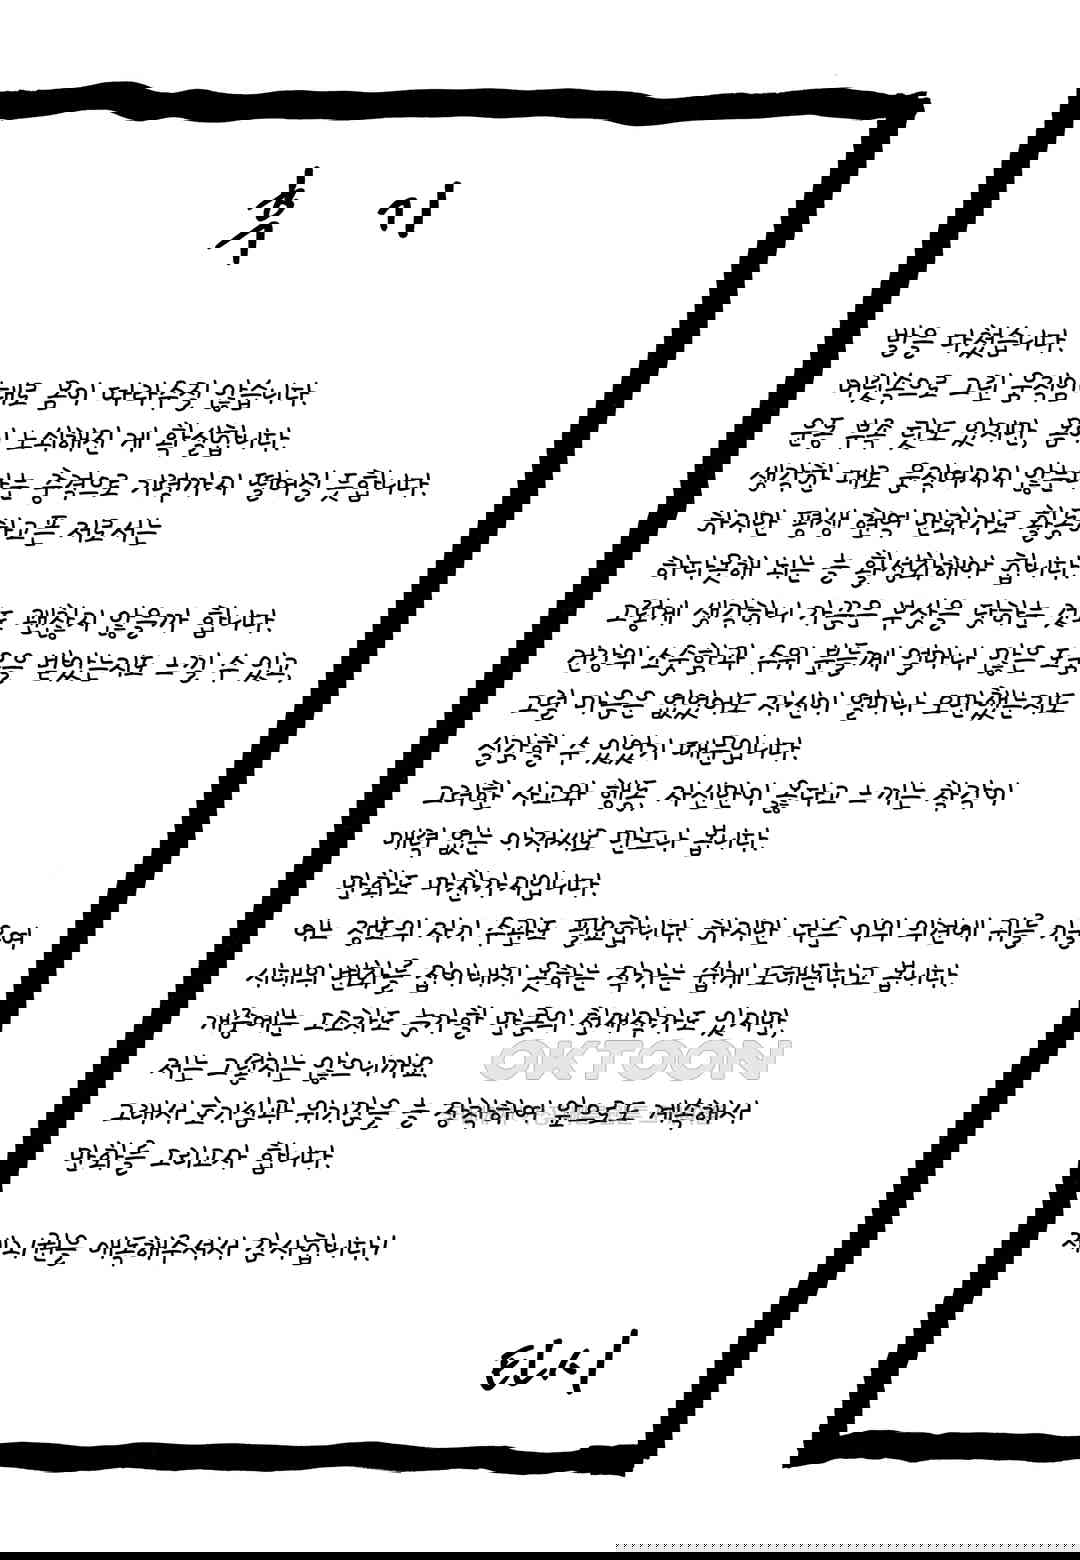 후 기
발을 다쳤습니다.
버릇속으로 그린 움직임이
대로 몸이 따라주질 않습니다.
운동 부족 탓도 있지만, 몸이
노쇠해진 게 확실합니다.
생각한 대로 움직여지지 않는다
는 충격으로 기력까지 떨어질 듯합니다.
하지만 평생 현역 만화가로 활동
하고픈 저로서는
하다못해 뇌는 늘 활성화해야 합니다.
그렇게 생각하니 가끔은 부상을 당하는 것
도 괜찮지 않을까 합니다.
건강의 소중함과 주위 분들께 얼마나 많은 도움
을 받았는지도 느낄 수 있고,
그럴 마음은 없었어도 자신이 얼마나 오만했는지도
실감할 수 있었기 때문입니다.
그러한 사고와 행동, 자신만이 옳다고 느끼는 착각이
매력 없는 아저씨로 만드나 봅니다.
만화도 마찬가지입니다.
어느 정도의 자기 주관도 필요합니다. 하지만 다른 이의 의견에 귀를 기울
여
시대의 변화를 잡아내지 못하는 작가는 쉽게 도태된다고 봅니다.
개중에는 그조차도 능가할 만큼의 천재작가도 있지만,
저는 그렇지는 않으니까요.
그래서 호기심과 위기감을 늘 장착하여 앞으로도 계속해서
만화를 그리고자 합니다.
제9권을 애독해주셔서 감사합니다!
린시
OKTOON